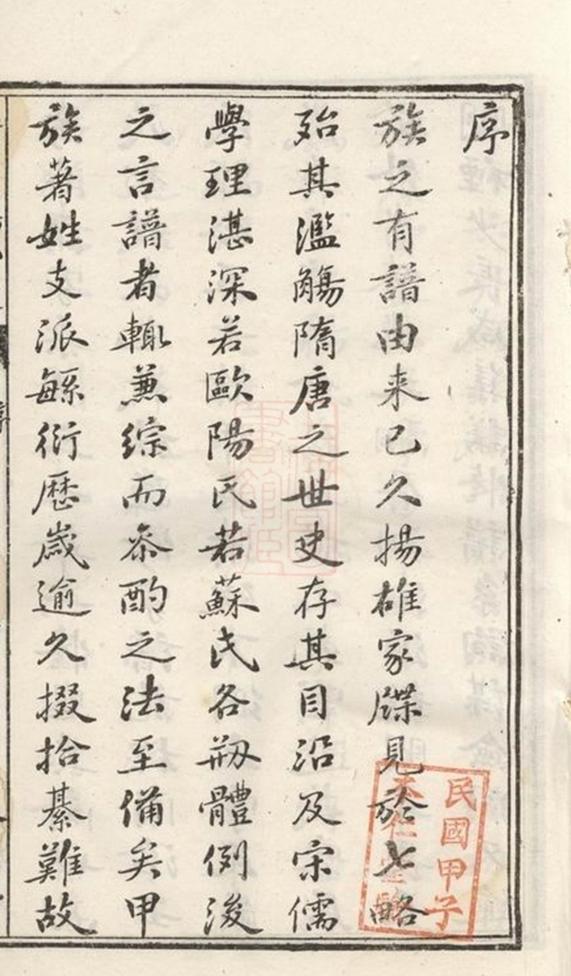 序
族之有譜由来已久揚雄家牒見於七略
殆其濫觴隋唐之世史存其目沿及宋儒
學理湛深若歐陽氏若蘇氏各刱體例後
之言譜者輒兼綜而叅酌之法至備矣甲
族著姓支派緐衍歷歲逾久掇拾綦難故
民國甲子